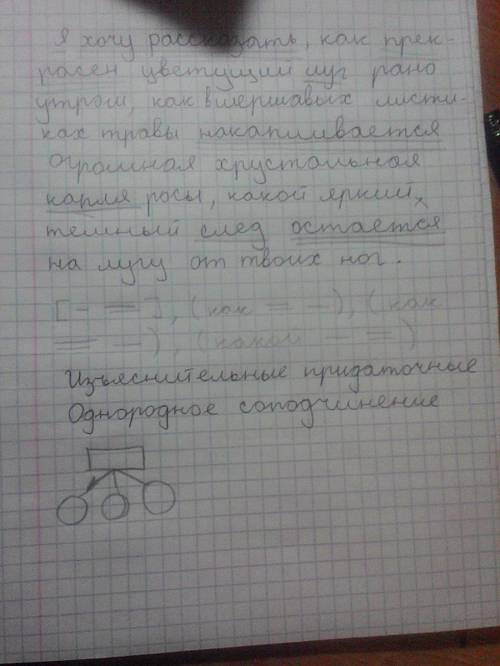 Я хочу рассказать, как прек-
расен цветущий луг рано
утром, как в шершавых листи-
ках травы накапливается
огромная хрустальная
капля росы, какой яркий,
темный след остается
на лугу от твоих ног.
[- =], (как = -), (как
= -), (какой - =)
Изъяснительные придаточные
Однородное соподчинение